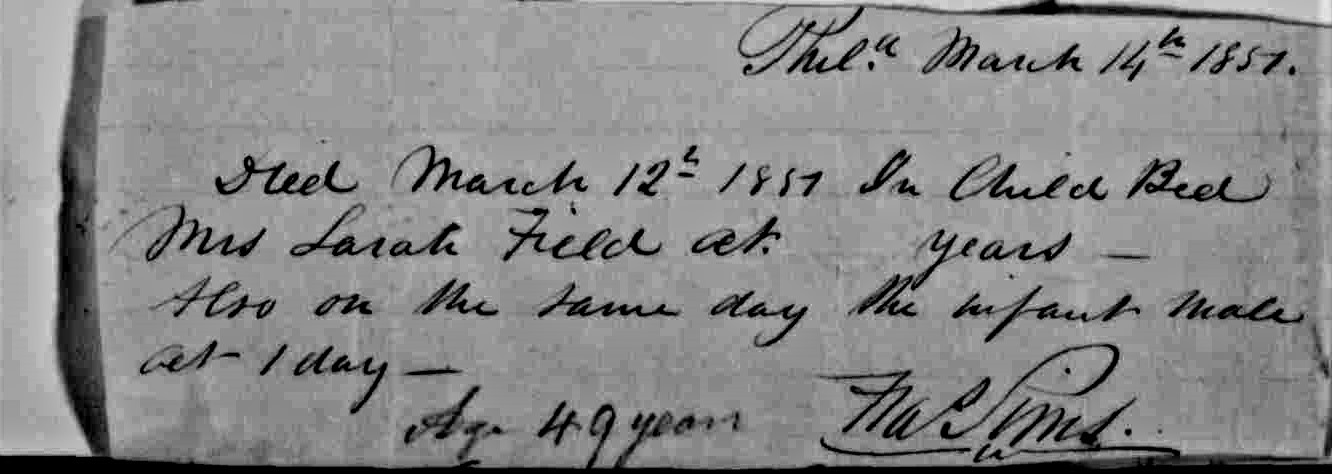 Phil.a March 14th 1857.
Died March 12th 1857 In Child Bed
Mrs Sarah Field aet. years —
Also on the same day the infant male
aet 1 day —
Age 49 years